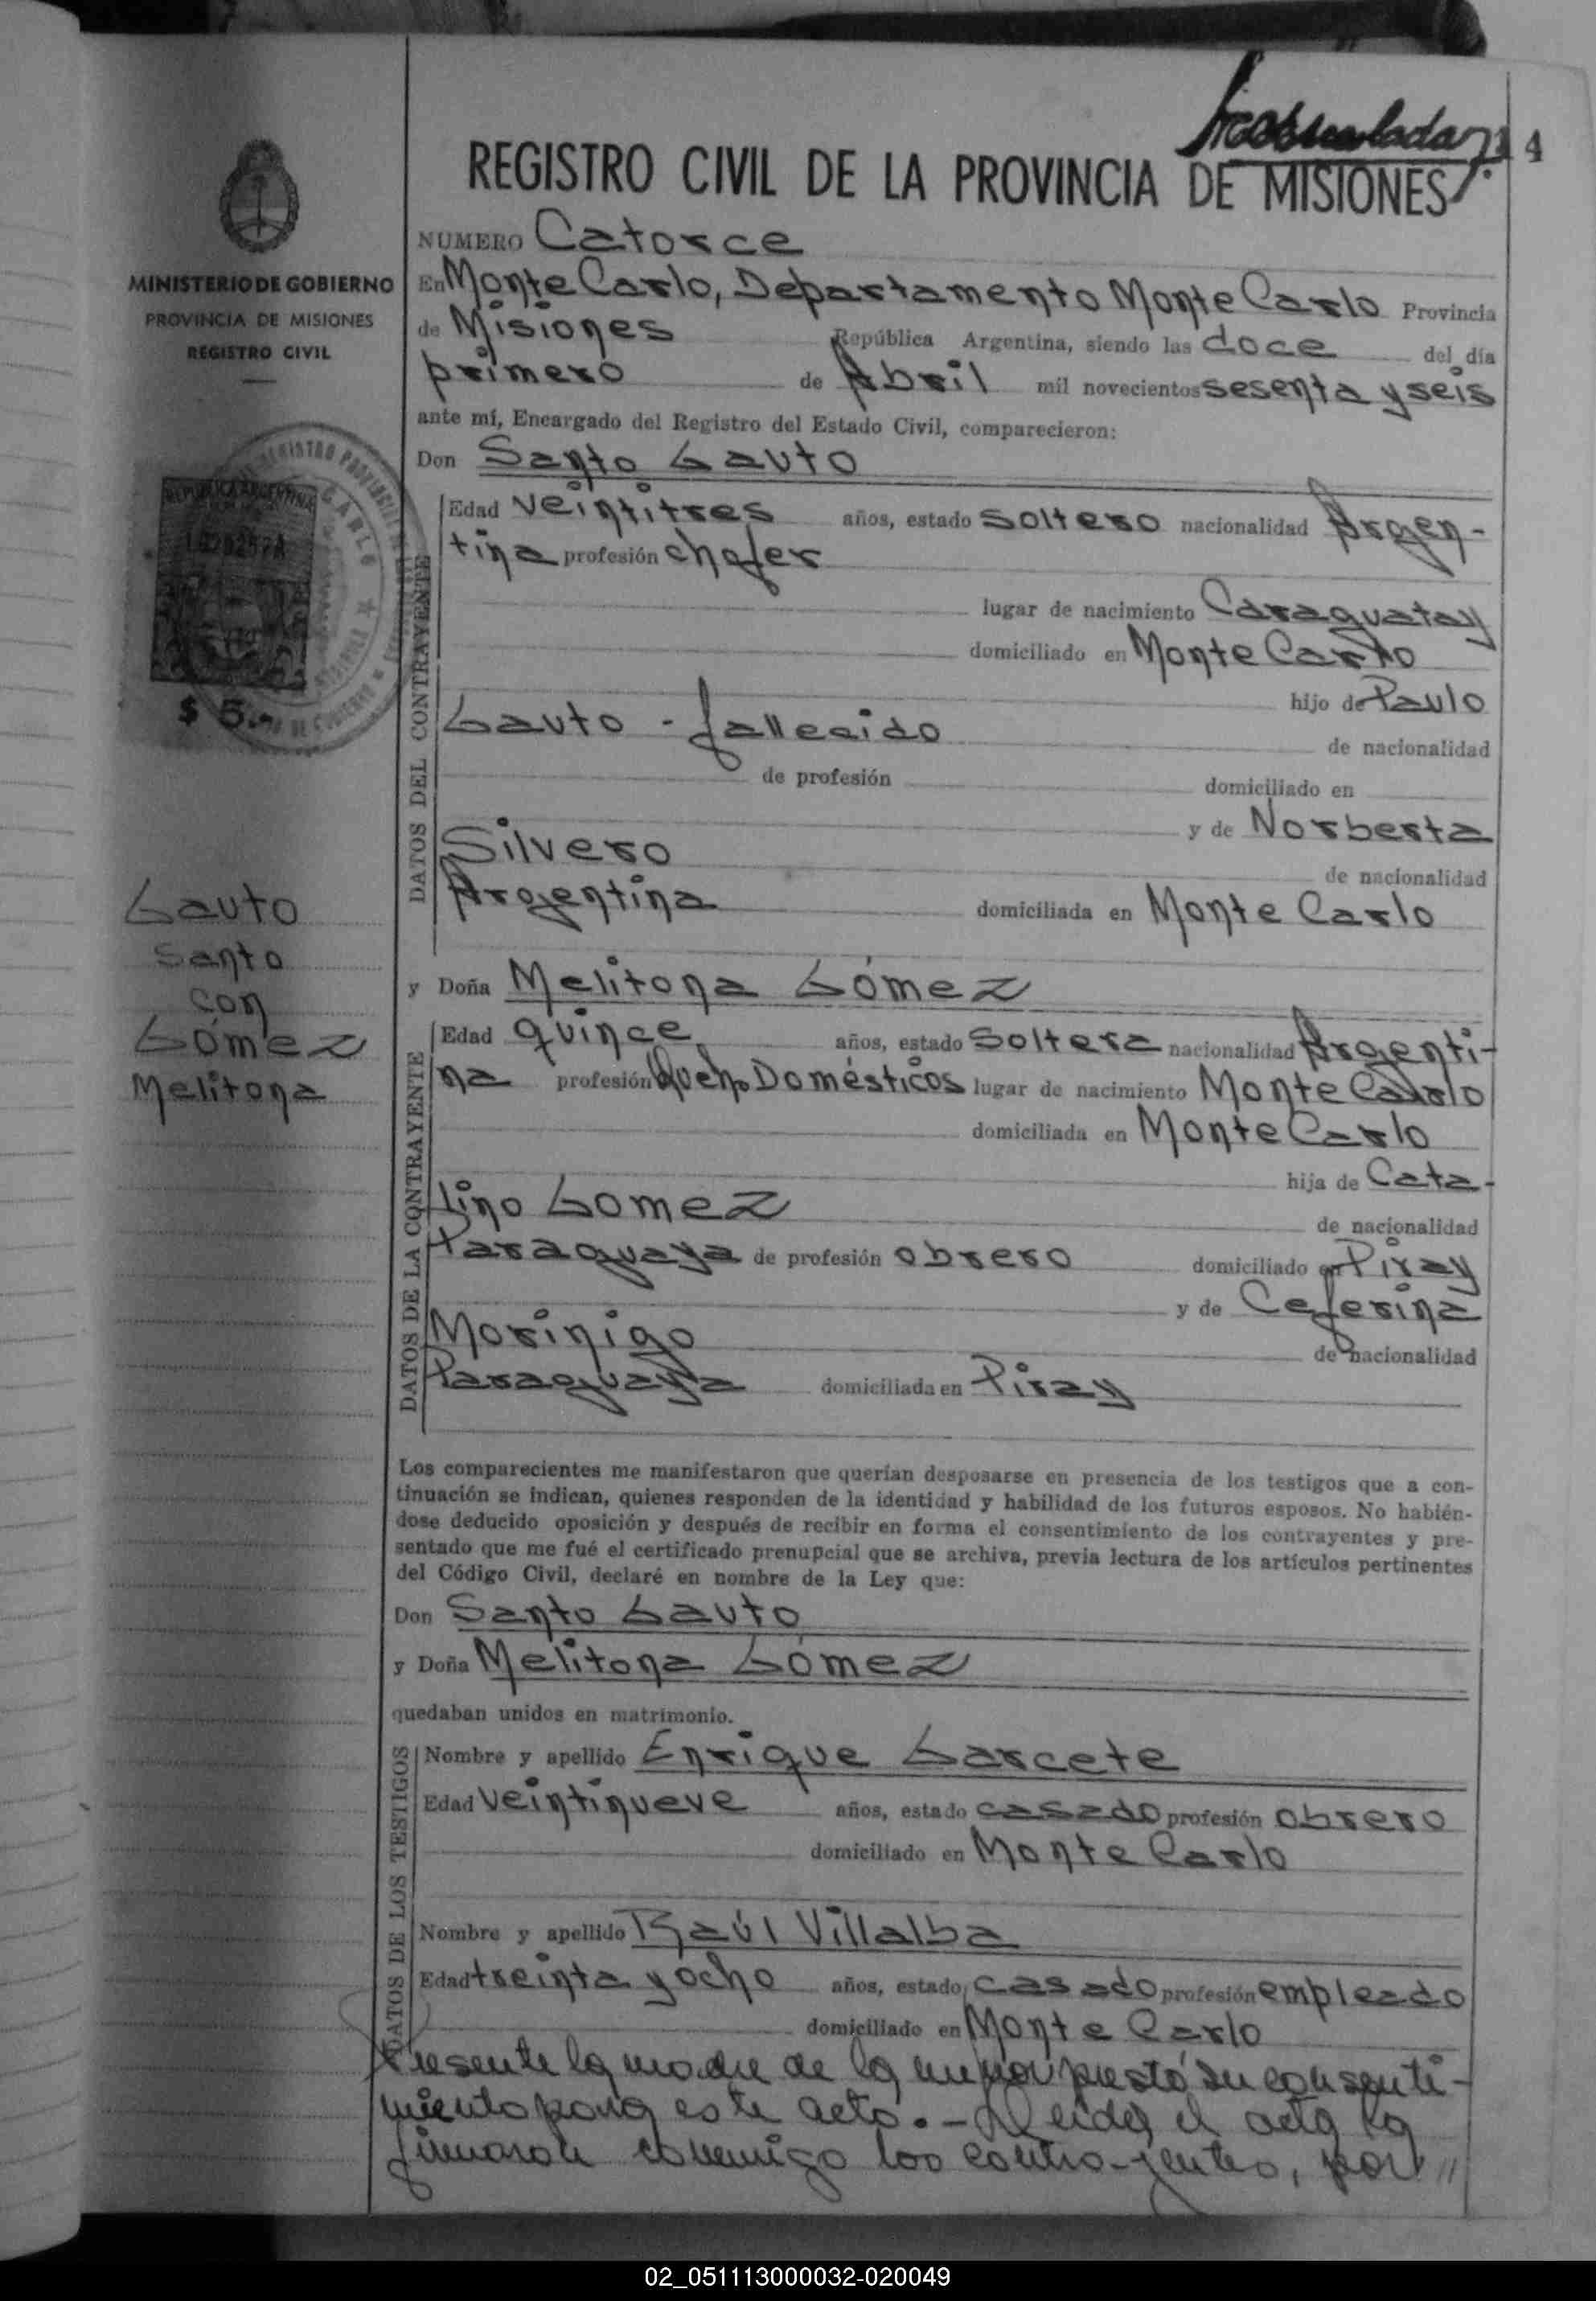 4
REGISTRO CIVIL DE LA PROVINCIA DE MISIONES
MINISTERIO DE GOBIERNO
PROVINCIA DE MISIONES
REGISTRO CIVIL
REPUBLICA ARGENTINA
$ 5.-
Gauto
Santo
con
Gómez
Melitona
NUMERO Catorce
En Monte Carlo, Departamento Monte Carlo Provincia
de Misiones República Argentina, siendo las doce del día
primero de Abril mil novecientos sesenta y seis
ante mí, Encargado del Registro del Estado Civil, comparecieron:
Don Santo Gauto
DATOS DEL CONTRAYENTE
Edad veintitres años, estado soltero nacionalidad Argen-
tina profesión chofer
lugar de nacimiento Caraguatay
domiciliado en Monte Carlo
hijo de Paulo
Gauto - fallecido de nacionalidad
de profesión domiciliado en
y de Norberta
Silvero de nacionalidad
Argentina domiciliada en Monte Carlo
y Doña Melitona Gómez
DATOS DE LA CONTRAYENTE
Edad quince años, estado soltera nacionalidad Argenti-
na profesión Queh. Domésticos lugar de nacimiento Monte Carlo
domiciliada en Monte Carlo
hija de Cata-
lino Gomez de nacionalidad
Paraguaya de profesión obrero domiciliado en Piray
y de Ceferina
Morinigo de nacionalidad
Paraguaya domiciliada en Piray
Los comparecientes me manifestaron que querían desposarse en presencia de los testigos que a con-
tinuación se indican, quienes responden de la identidad y habilidad de los futuros esposos. No habién-
dose deducido oposición y después de recibir en forma el consentimiento de los contrayentes y pre-
sentado que me fué el certificado prenupcial que se archiva, previa lectura de los artículos pertinentes
del Código Civil, declaré en nombre de la Ley que:
Don Santo Gauto
y Doña Melitona Gómez
quedaban unidos en matrimonio.
DATOS DE LOS TESTIGOS
Nombre y apellido Enrique Garcete
Edad veintinueve años, estado casado profesión obrero
domiciliado en Monte Carlo
Nombre y apellido Raúl Villalba
Edad treinta y ocho años, estado casado profesión empleado
domiciliado en Monte Carlo
Presente la madre de la menor prestó su consenti-
miento para este acto.- Leida el acta la
firmaron conmigo los contra-yentes, por //
02_051113000032-020049